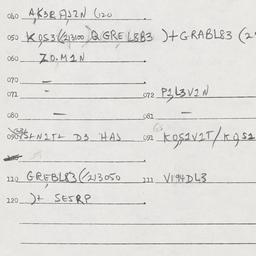 040 AK3R AJ2N (120
050 KOS3 (213100) QGREL8B3 )+GRABL83 (2
060 ZO.M1N
070 –
071 - 072 P1L3V1N
080 – 081 –
090 S+N2T+ D3 HAS 091 KOS1V2T/KOS2
110 GREBL83 (213050 111 V194DL3
120 )+ SESRP